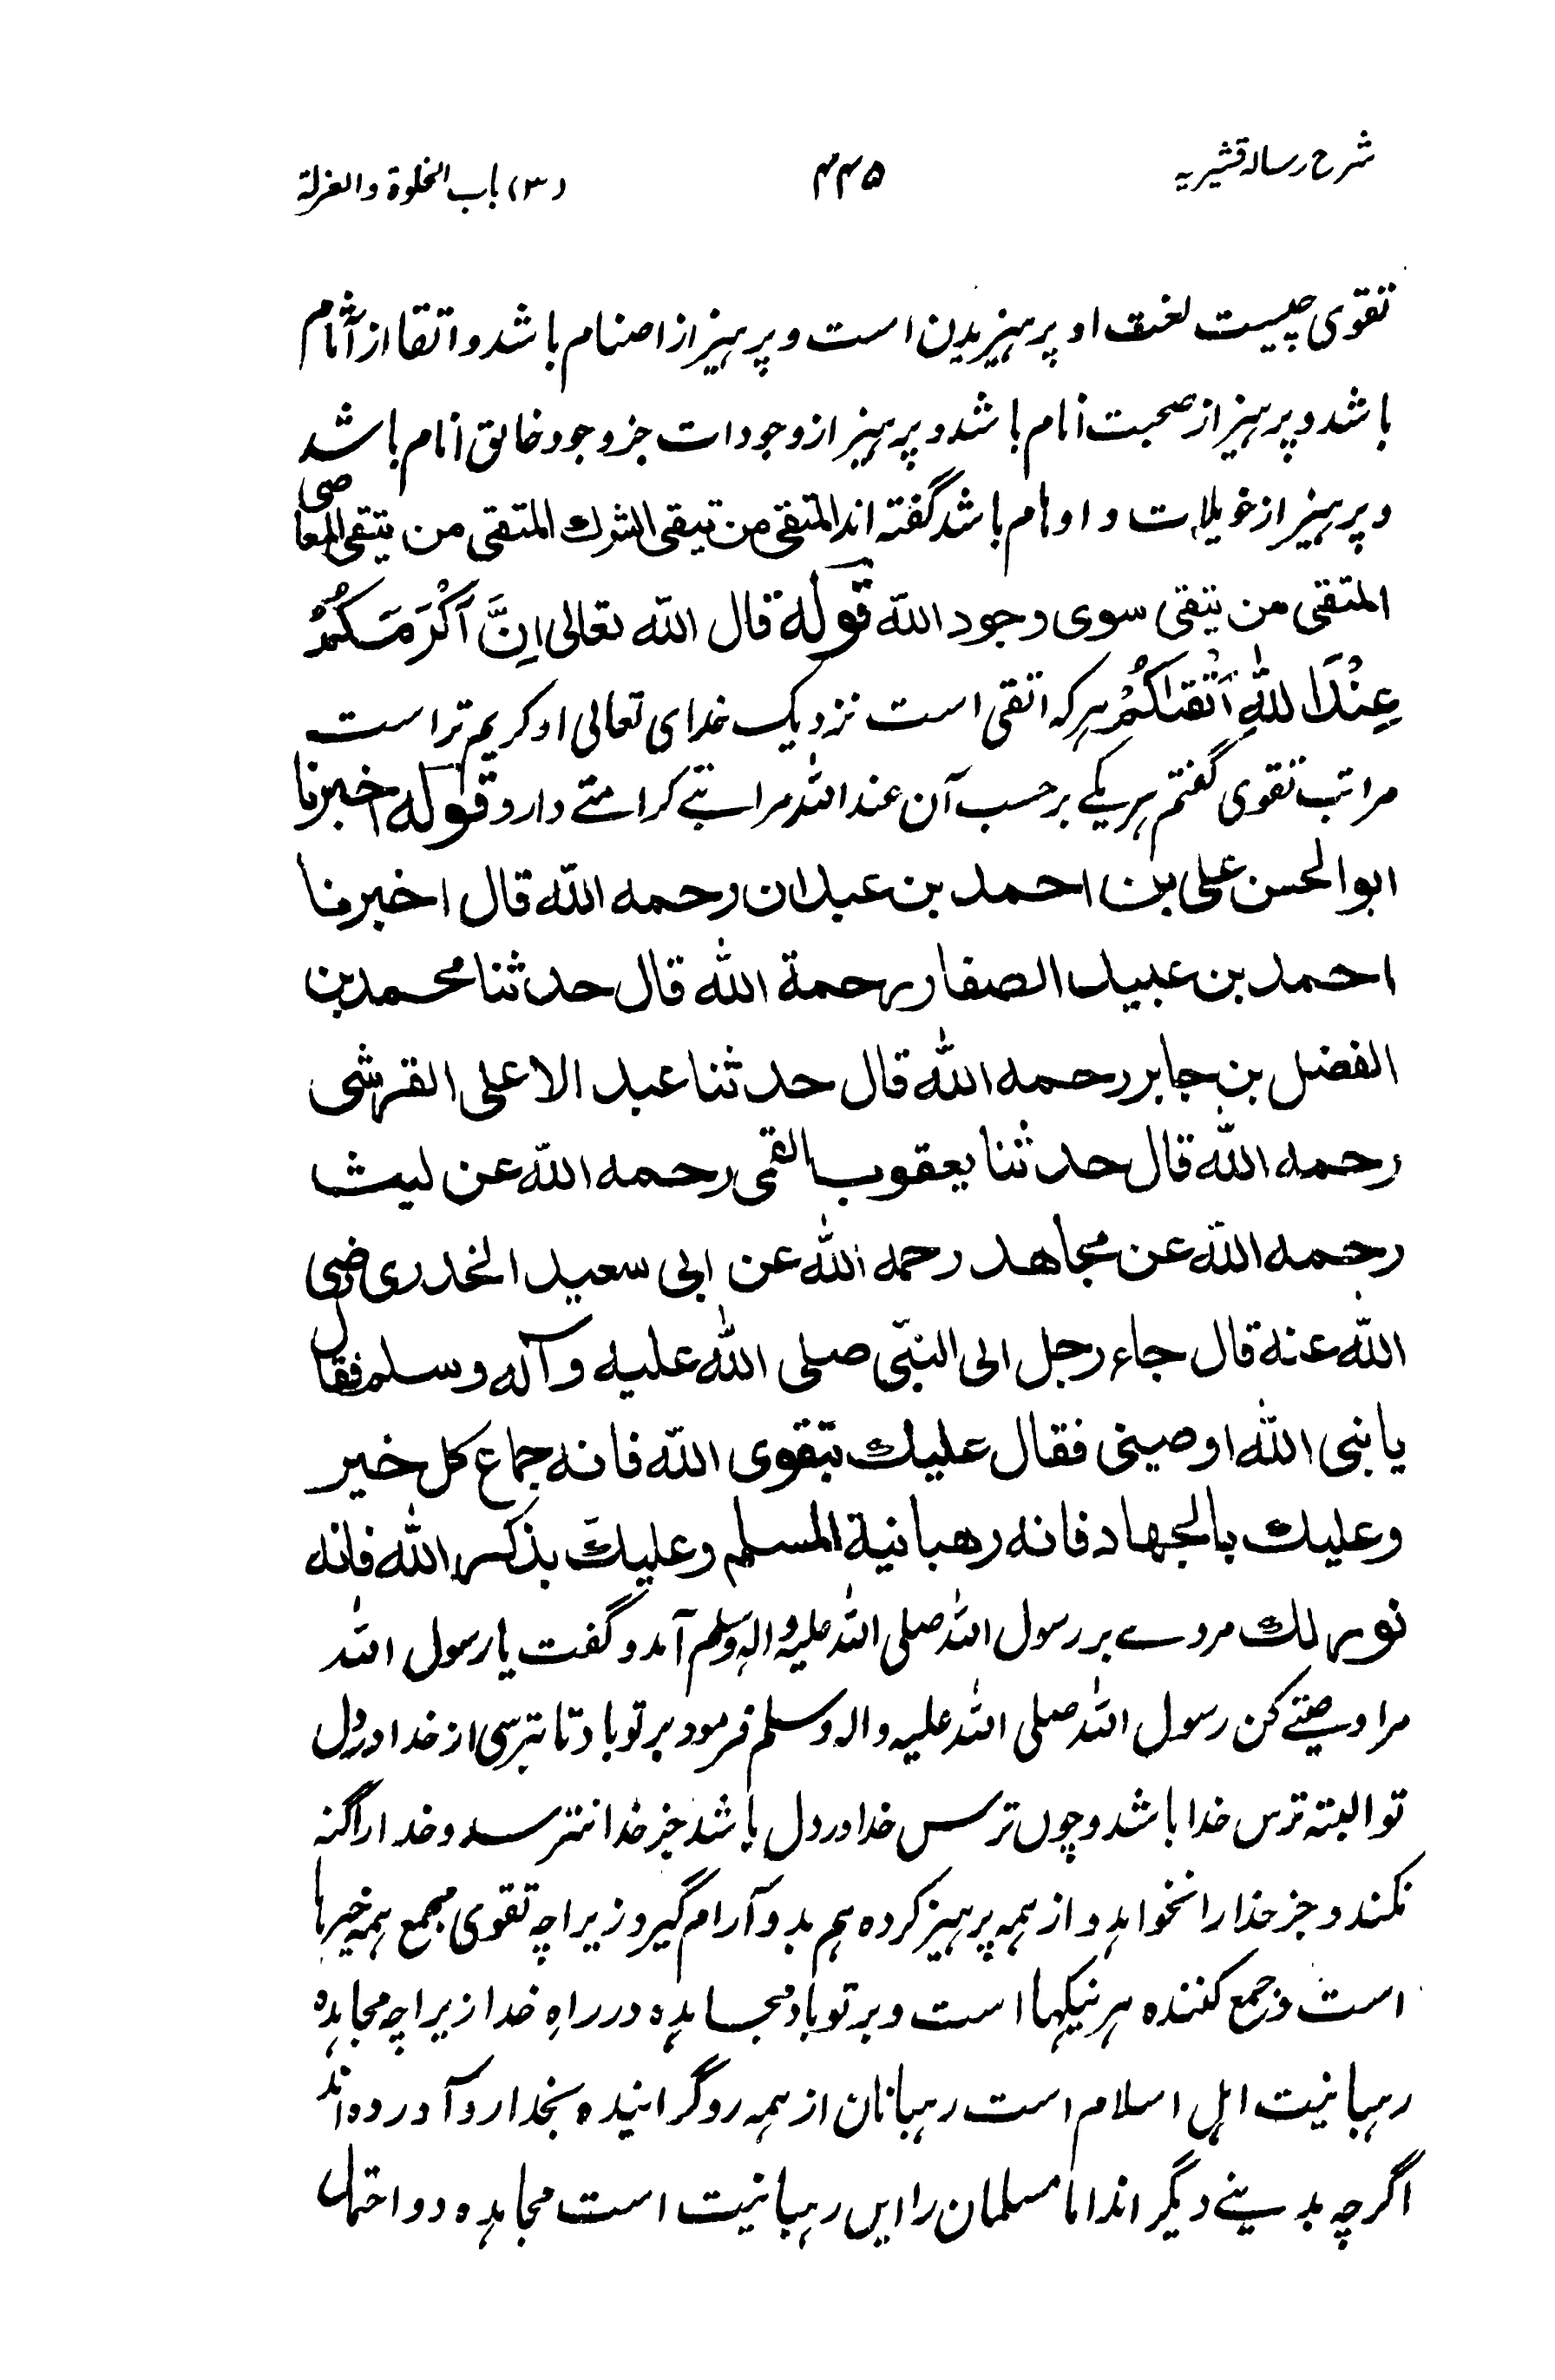 شرح رساله قشیریه
۴۴۵
(۳) باب الخلوة والعزلة
تقوی چیست لغت او پرہیزیدن است و پرہیز از اصنام باشد و اتقا از آثام
باشد و پرہیز از صحبت انام باشد و پرہیز از وجودات جز وجود خالق انام باشد
و پرہیز از و اوہام باشد گفته اند المتقی من تیقی الشرك المتقی من یتقی المعاصی
المتقی من یتقی سوی وجود اللّه قوله قال اللّه تعالی اِنَّ اَکْرَمَکُمْ
عِنْدَ اللّٰهِ اَتْقٰىکُمْ ہرکہ اتقی است نزدیک خدای تعالی او کریم تر است
مراتب تقوی گفتم ہریکے برحسب آن عند اللّٰہ مراتبے کرامتے دارد قوله اخبرنا
ابوالحسن علی بن احمد بن عبدان رحمه اللّه قال اخبرنا
احمد بن عبید الصفار رحمة اللّٰه قال حدثنا محمد بن
الفضل بن جابر رحمه اللّٰه قال حدثنا عبد الاعلی القرشی
رحمه اللّٰه قال حدثنا یعقوب القمی رحمه اللّه عن لیث
رحمه اللّه عن مجاهد رحمه اللّٰه عن ابی سعید الخدری رضی
اللّٰه عنه قال جاء رجل الی النبّی صلی اللّٰه علیه وآله وسلم فقال
یا نبی اللّٰه اوصینی فقال علیك بتقوی اللّه فانه جماع کل خیر
وعلیك بالجهاد فانه رهبانیة المسلم وعلیكَ بذکر اللّٰه فانه
نور لك مردے بر رسول اللّٰہ صلی اللّٰہ علیہ والہ وسلم آمد و گفت یا رسول اللّٰہ
مرا وصیتے کن رسول اللّٰہ صلی اللّٰہ علیہ والہ وسلم فرمود بر تو باد تا بترسی از خدا در دل
تو البتہ ترس خدا باشد و چوں ترس خدا در دل باشد جز خدا نترسد و خدارا گنہ
نکند و جز خدا را نخواہد و از ہمہ پرہیز کردہ ہم بدو آرام گیرد زیراچہ تقوی مجمع ہمہ خیرہا
است و جمع کنندہ ہر نیکیہا است و بر تو باد مجاہدہ در راہِ خدا زیراچہ مجاہدہ
رہبانیت اہل اسلام است رہبانان از ہمہ رو گرانیدہ بخدا رو آوردہ اند
اگرچہ بدینے دیگر اند اما مسلمان را ایں رہبانیت است مجاہدہ دو احتمال